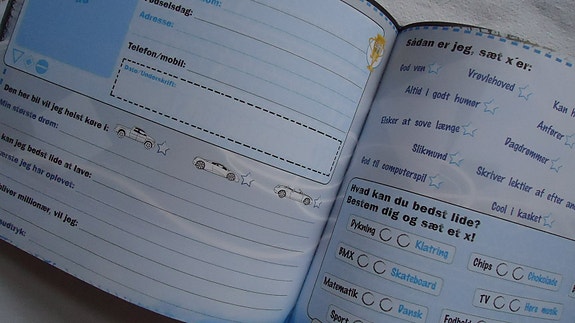 Fødselsdag:
Adresse:
Telefon/mobil:
Dato/Underskrift:
Den her bil vil jeg helst køre i:
Min største drøm:
kan jeg bedst lide at lave:
jeg har oplevet:
bliver millionær, vil jeg:
Sådan er jeg, sæt x'er:
God ven
Vrøvlehoved
Kan h
Altid i godt humør
Anfører
Elsker at sove længe
Dagdrømmer
Slikmund
Skriver lektier af efter an
Vild til computerspil
Cool i kasket
Hvad kan du bedst lide?
Bestem dig og sæt et x!
Pykning Klatring
Chips Chokolade
BMX Skateboard
TV Høre musik
Matematik Dansk
Fodbold
Sport